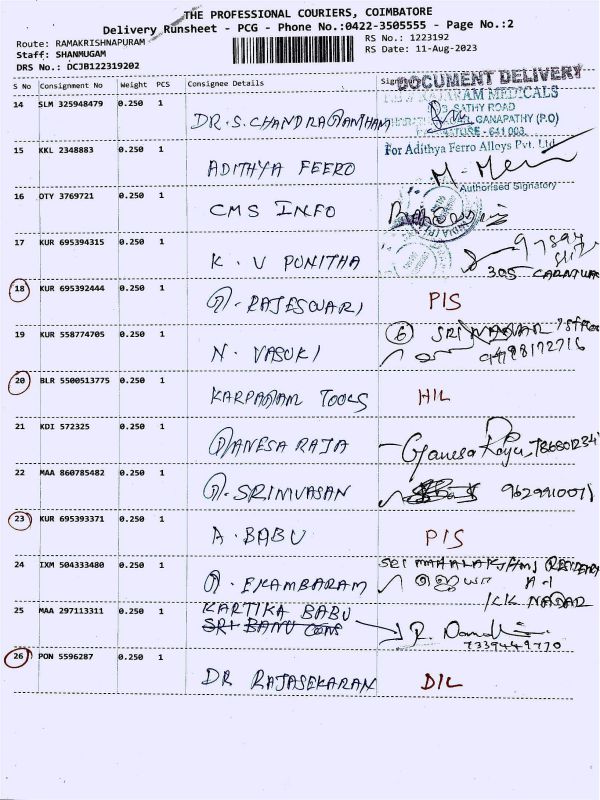 THE PROFESSIONAL COURIERS, COIMBATORE
Delivery Runsheet - PCG - Phone No.:0422-3505555 - Page No.:2
Route: RAMAKRISHNAPURAM RS No.: 1223192
Staff: SHANMUGAM RS Date: 11-Aug-2023
DRS No.: DCJB122319202
S No Consignment No Weight PCS Consignee Details
DOCUMENT DELIVERY
14 SLM 325948479 0.250 1 DR. S. CHANDRAGANTHAM
MEDICALS
SATHY ROAD
GANAPATHY (P.O)
- 641 003
15 KKL 2348883 0.250 1 ADITHYA FEERO
For Adithya Ferro Alloys Pvt. Ltd
Authorised Signatory
16 OTY 3769721 0.250 1 CMS INFO
17 KUR 695394315 0.250 1 K. V PUNITHA
305
18 KUR 695392444 0.250 1 G. RAJESWARI PIS
19 KUR 558774705 0.250 1 N. VASUKI
6 SRI NAGAR
20 BLR 5500513775 0.250 1 KARPAGAM TOOLS HIL
21 KDI 572325 0.250 1 GANESA RAJA Ganesa Raja
22 MAA 860785482 0.250 1 G. SRINIVASAN
23 KUR 695393371 0.250 1 A. BABU PIS
24 IXM 504333480 0.250 1 G. EKAMBARAM
K.K NAGAR
25 MAA 297113311 0.250 1 KARTIKA BABU
SRI BANU CONS
7339449770
26 PON 5596287 0.250 1 DR RAJASEKARAN DIL